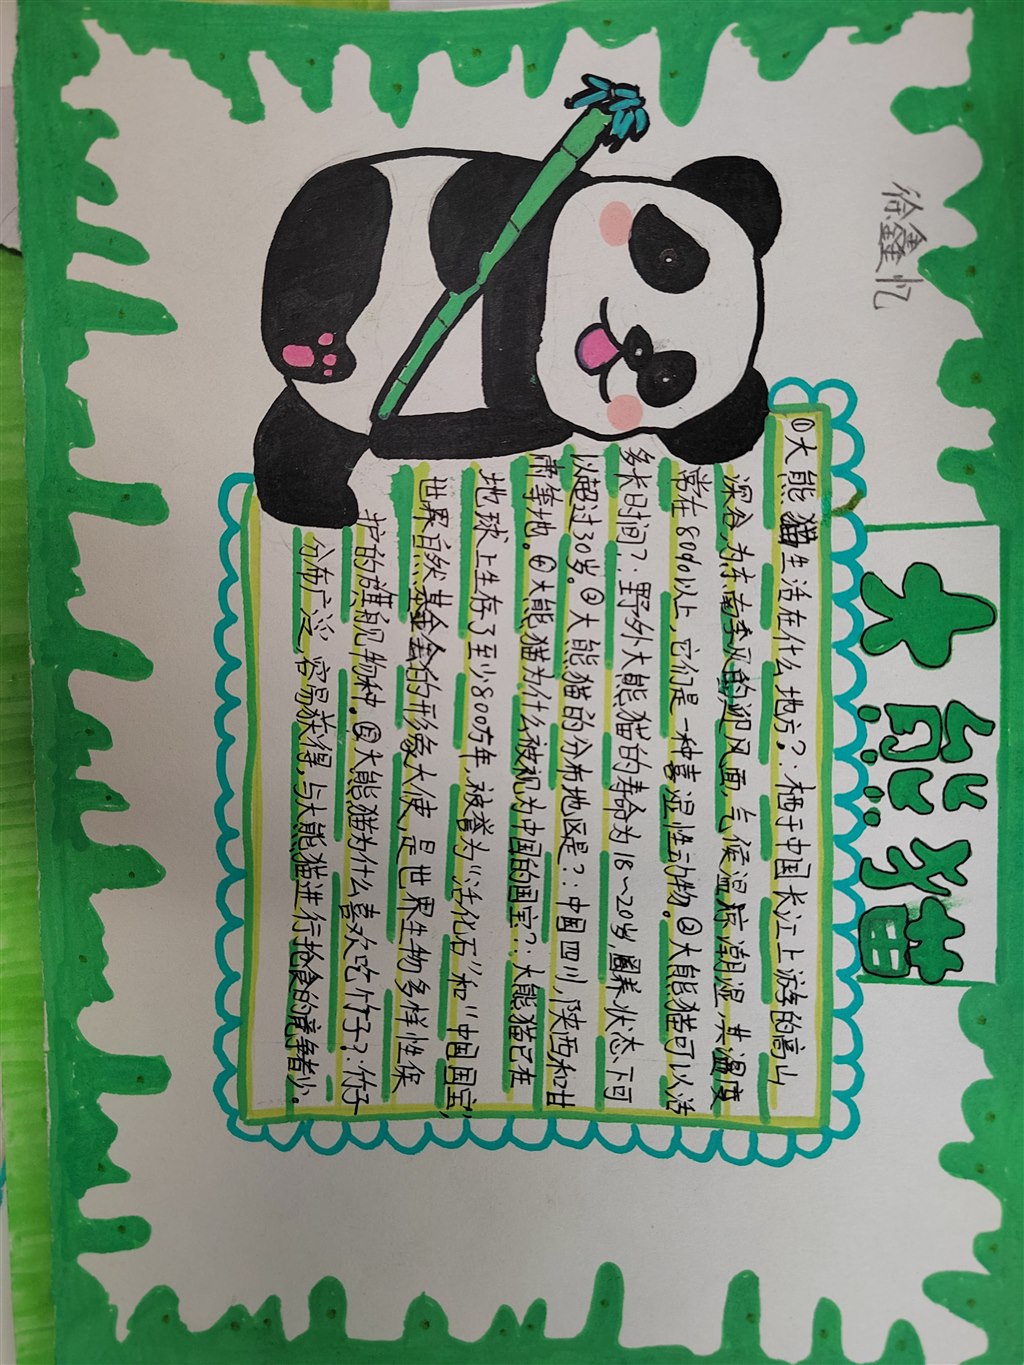 徐鑫忆
大熊猫
①大熊猫生活在什么地方？：栖于中国长江上游的高山
深谷，为东南季风的迎风面，气候温凉潮湿，其湿度
常在80%以上，它们是一种喜湿性动物。②大熊猫可以活
多长时间？：野外大熊猫的寿命为18～20岁，圈养状态下可
以超过30岁。③大熊猫的分布地区是？：中国四川，陕西和甘
肃等地。④大熊猫为什么被视为中国的国宝？：大熊猫已在
地球上生存了至少800万年，被誉为“活化石”和“中国国宝”，
世界自然基金会的形象大使，是世界生物多样性保
护的旗舰物种。⑤大熊猫为什么喜欢吃竹子？：竹子
分布广泛，容易获得，与大熊猫进行抢食的竞争者少。